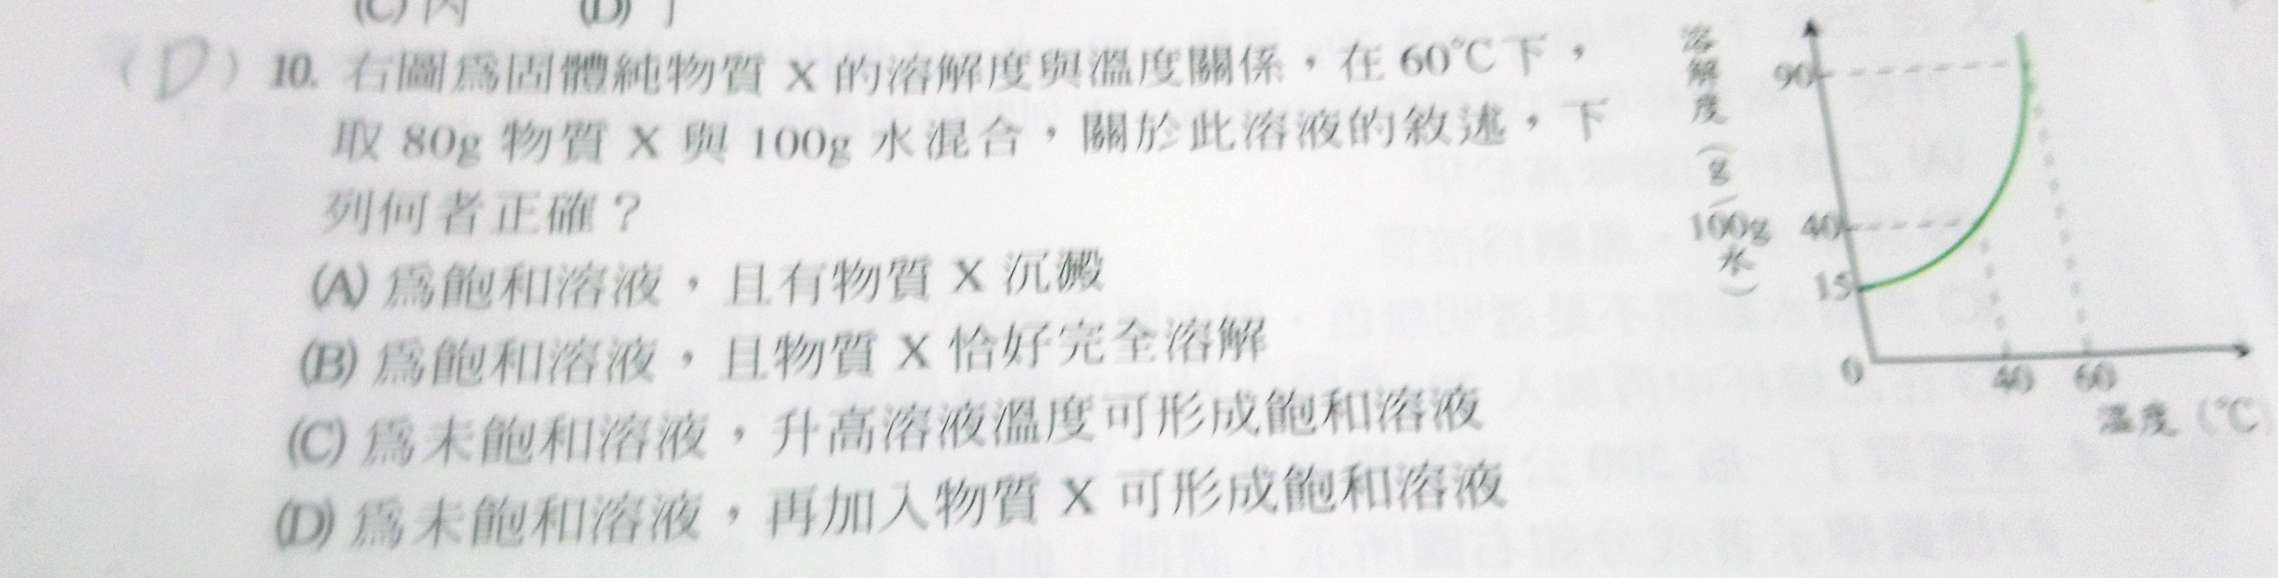 (C) 丙 (D) 丁
(D) 10. 右圖為固體純物質 X 的溶解度與溫度關係,在 60℃下,
取 80g 物質 X 與 100g 水混合,關於此溶液的敘述,下
列何者正確?
(A) 為飽和溶液,且有物質 X 沉澱
(B) 為飽和溶液,且物質 X 恰好完全溶解
(C) 為未飽和溶液,升高溶液溫度可形成飽和溶液
(D) 為未飽和溶液,再加入物質 X 可形成飽和溶液
溶解度(g/100g水)
90
40
15
0 40 60
溫度(℃)